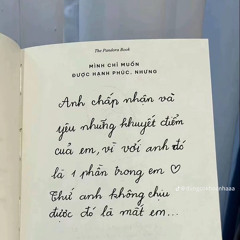 The Pandora Book
MÌNH CHỈ MUỐN
ĐƯỢC HẠNH PHÚC, NHƯNG
Anh chấp nhận và
yêu những khuyết điểm
của em, vì với anh đó
là 1 phần trong em ♡
Thứ anh không chịu
được đó là mất em...